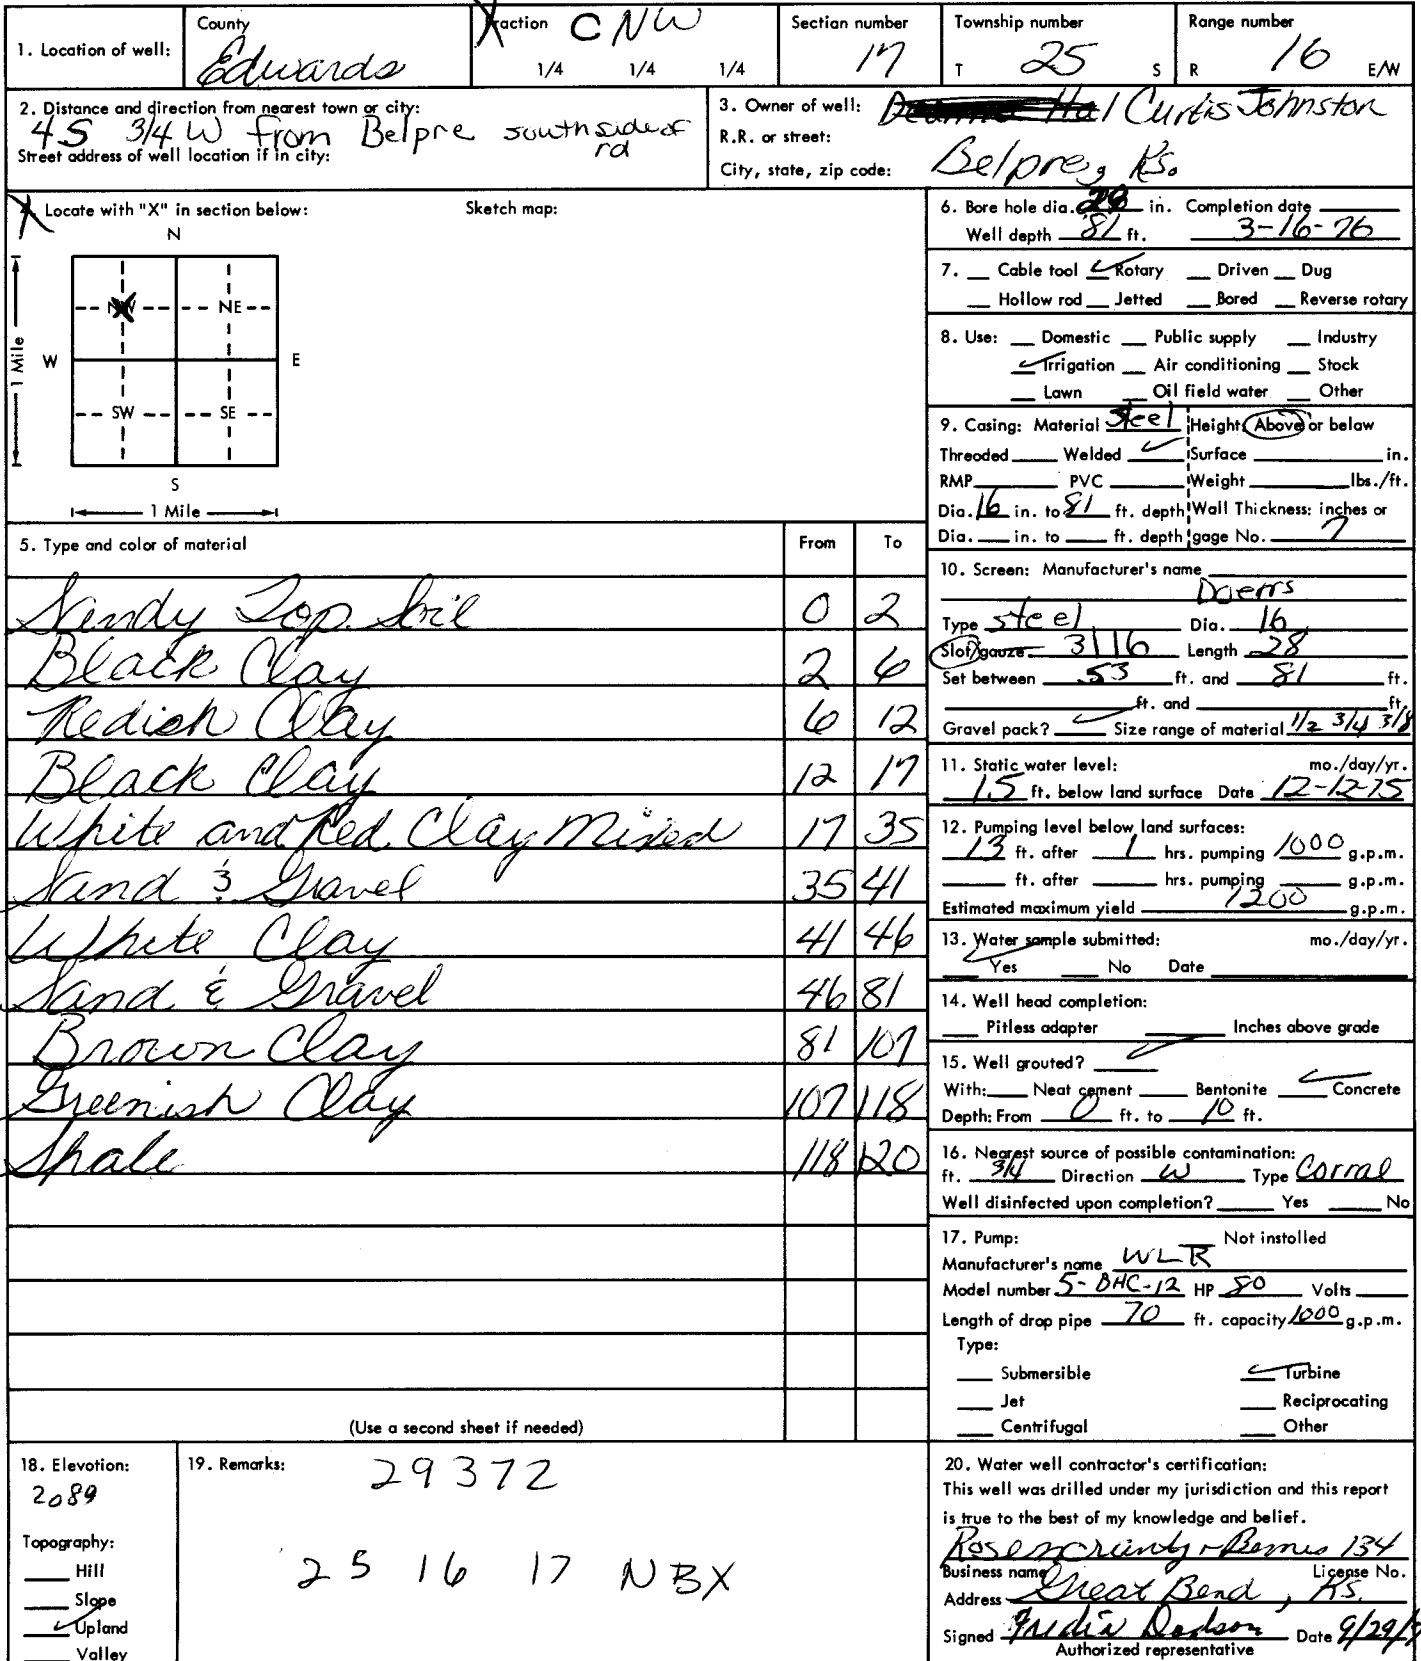 1. Location of well: County Edwards Fraction C NW 1/4 1/4 1/4 Section number 17 Township number T 25 S Range number R 16 E/W
2. Distance and direction from nearest town or city:
4S 3/4 W from Belpre south side of rd
Street address of well location if in city:
3. Owner of well: Curtis Johnston
R.R. or street:
City, state, zip code: Belpre, Ks.
Locate with "X" in section below: Sketch map:
N
NW NE
W E
1 Mile
SW SE
S
1 Mile
5. Type and color of material From To
Sandy Top Soil 0 2
Black Clay 2 6
Redish Clay 6 12
Black Clay 12 17
White and Red Clay Mixed 17 35
Sand & Gravel 35 41
White Clay 41 46
Sand & Gravel 46 81
Brown Clay 81 107
Greenish Clay 107 118
Shale 118 120
(Use a second sheet if needed)
6. Bore hole dia. in. Completion date
Well depth 81 ft. 3-16-76
7. Cable tool Rotary Driven Dug
Hollow rod Jetted Bored Reverse rotary
8. Use: Domestic Public supply Industry
Irrigation Air conditioning Stock
Lawn Oil field water Other
9. Casing: Material Steel Height: Above or below
Threaded Welded Surface in.
RMP PVC Weight lbs./ft.
Dia. 16 in. to 81 ft. depth Wall Thickness: inches or
Dia. in. to ft. depth gage No. 7
10. Screen: Manufacturer's name
Doerrs
Type steel Dia. 16
Slot/gauze 3116 Length 28
Set between 53 ft. and 81 ft.
ft. and ft.
Gravel pack? Size range of material 1/2 3/4 3/8
11. Static water level: mo./day/yr.
15 ft. below land surface Date 12-12-75
12. Pumping level below land surfaces:
13 ft. after 1 hrs. pumping 1000 g.p.m.
ft. after hrs. pumping g.p.m.
Estimated maximum yield 1200 g.p.m.
13. Water sample submitted: mo./day/yr.
Yes No Date
14. Well head completion:
Pitless adapter Inches above grade
15. Well grouted?
With: Neat cement Bentonite Concrete
Depth: From 0 ft. to 10 ft.
16. Nearest source of possible contamination:
ft. 3/4 Direction W Type Corral
Well disinfected upon completion? Yes No
17. Pump: Not installed
Manufacturer's name WLR
Model number 5-BHC-12 HP 80 Volts
Length of drop pipe 70 ft. capacity 1000 g.p.m.
Type:
Submersible Turbine
Jet Reciprocating
Centrifugal Other
18. Elevation:
2089
Topography:
Hill
Slope
Upland
Valley
19. Remarks: 29372
25 16 17 NBX
20. Water well contractor's certification:
This well was drilled under my jurisdiction and this report
is true to the best of my knowledge and belief.
134
Business name License No.
Address Great Bend, Ks.
Signed Dodson Date 9/29/
Authorized representative